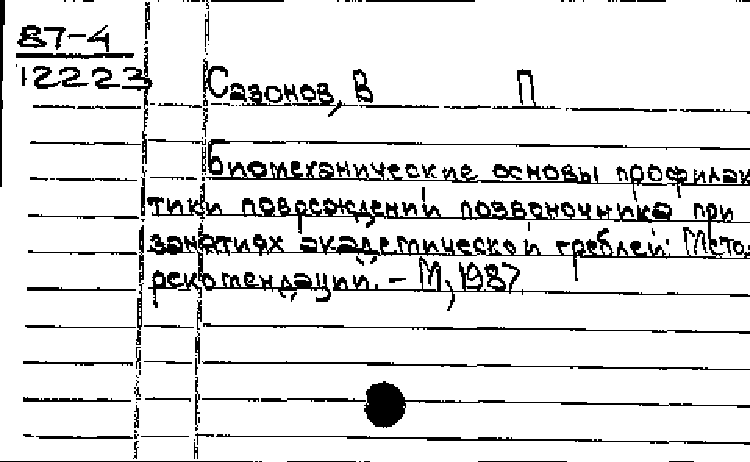 87-4
12223
Сазонов, В П
Биомеханические основы профилак
тики повреждений позвоночника при
занятиях академической греблей: Метод.
рекомендации. - М, 1987